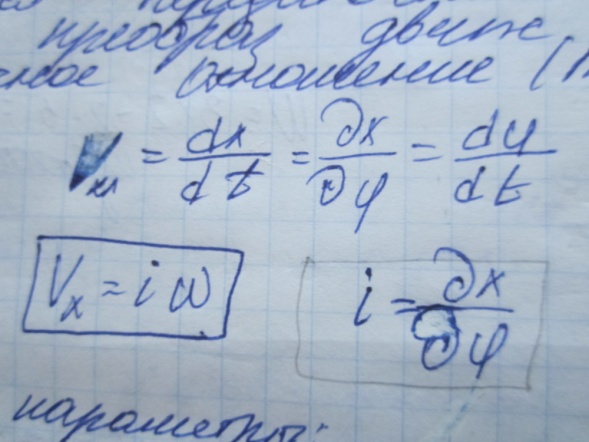 преобраз движ
ное отношение (
V_{xм} = \frac{dx}{dt} = \frac{∂x}{∂φ} = \frac{dφ}{dt}
V_x = i ω
i = \frac{∂x}{∂φ}
параметры: